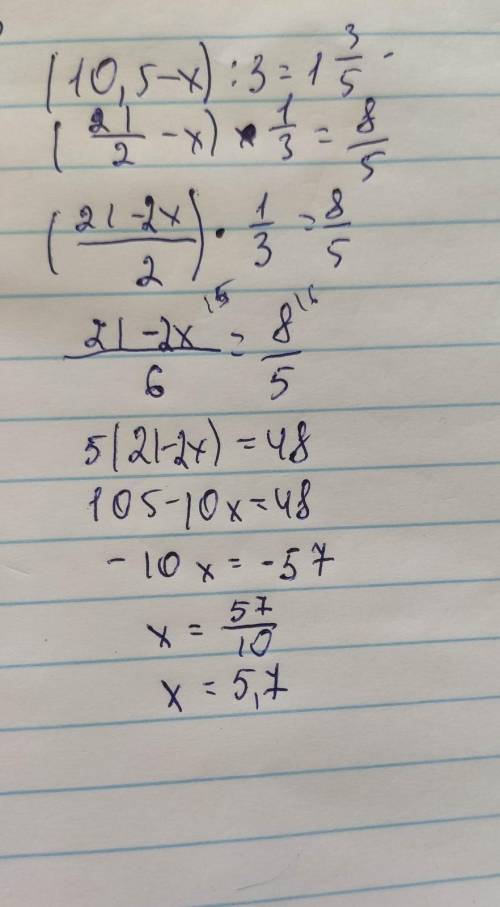 (10,5-x):3=1 3/5
(21/2 -x)·1/3=8/5
((21-2x)/2)·1/3=8/5
(21-2x)/6 \5 = 8/5 \6
5(21-2x)=48
105-10x=48
-10x=-57
x=57/10
x=5,7